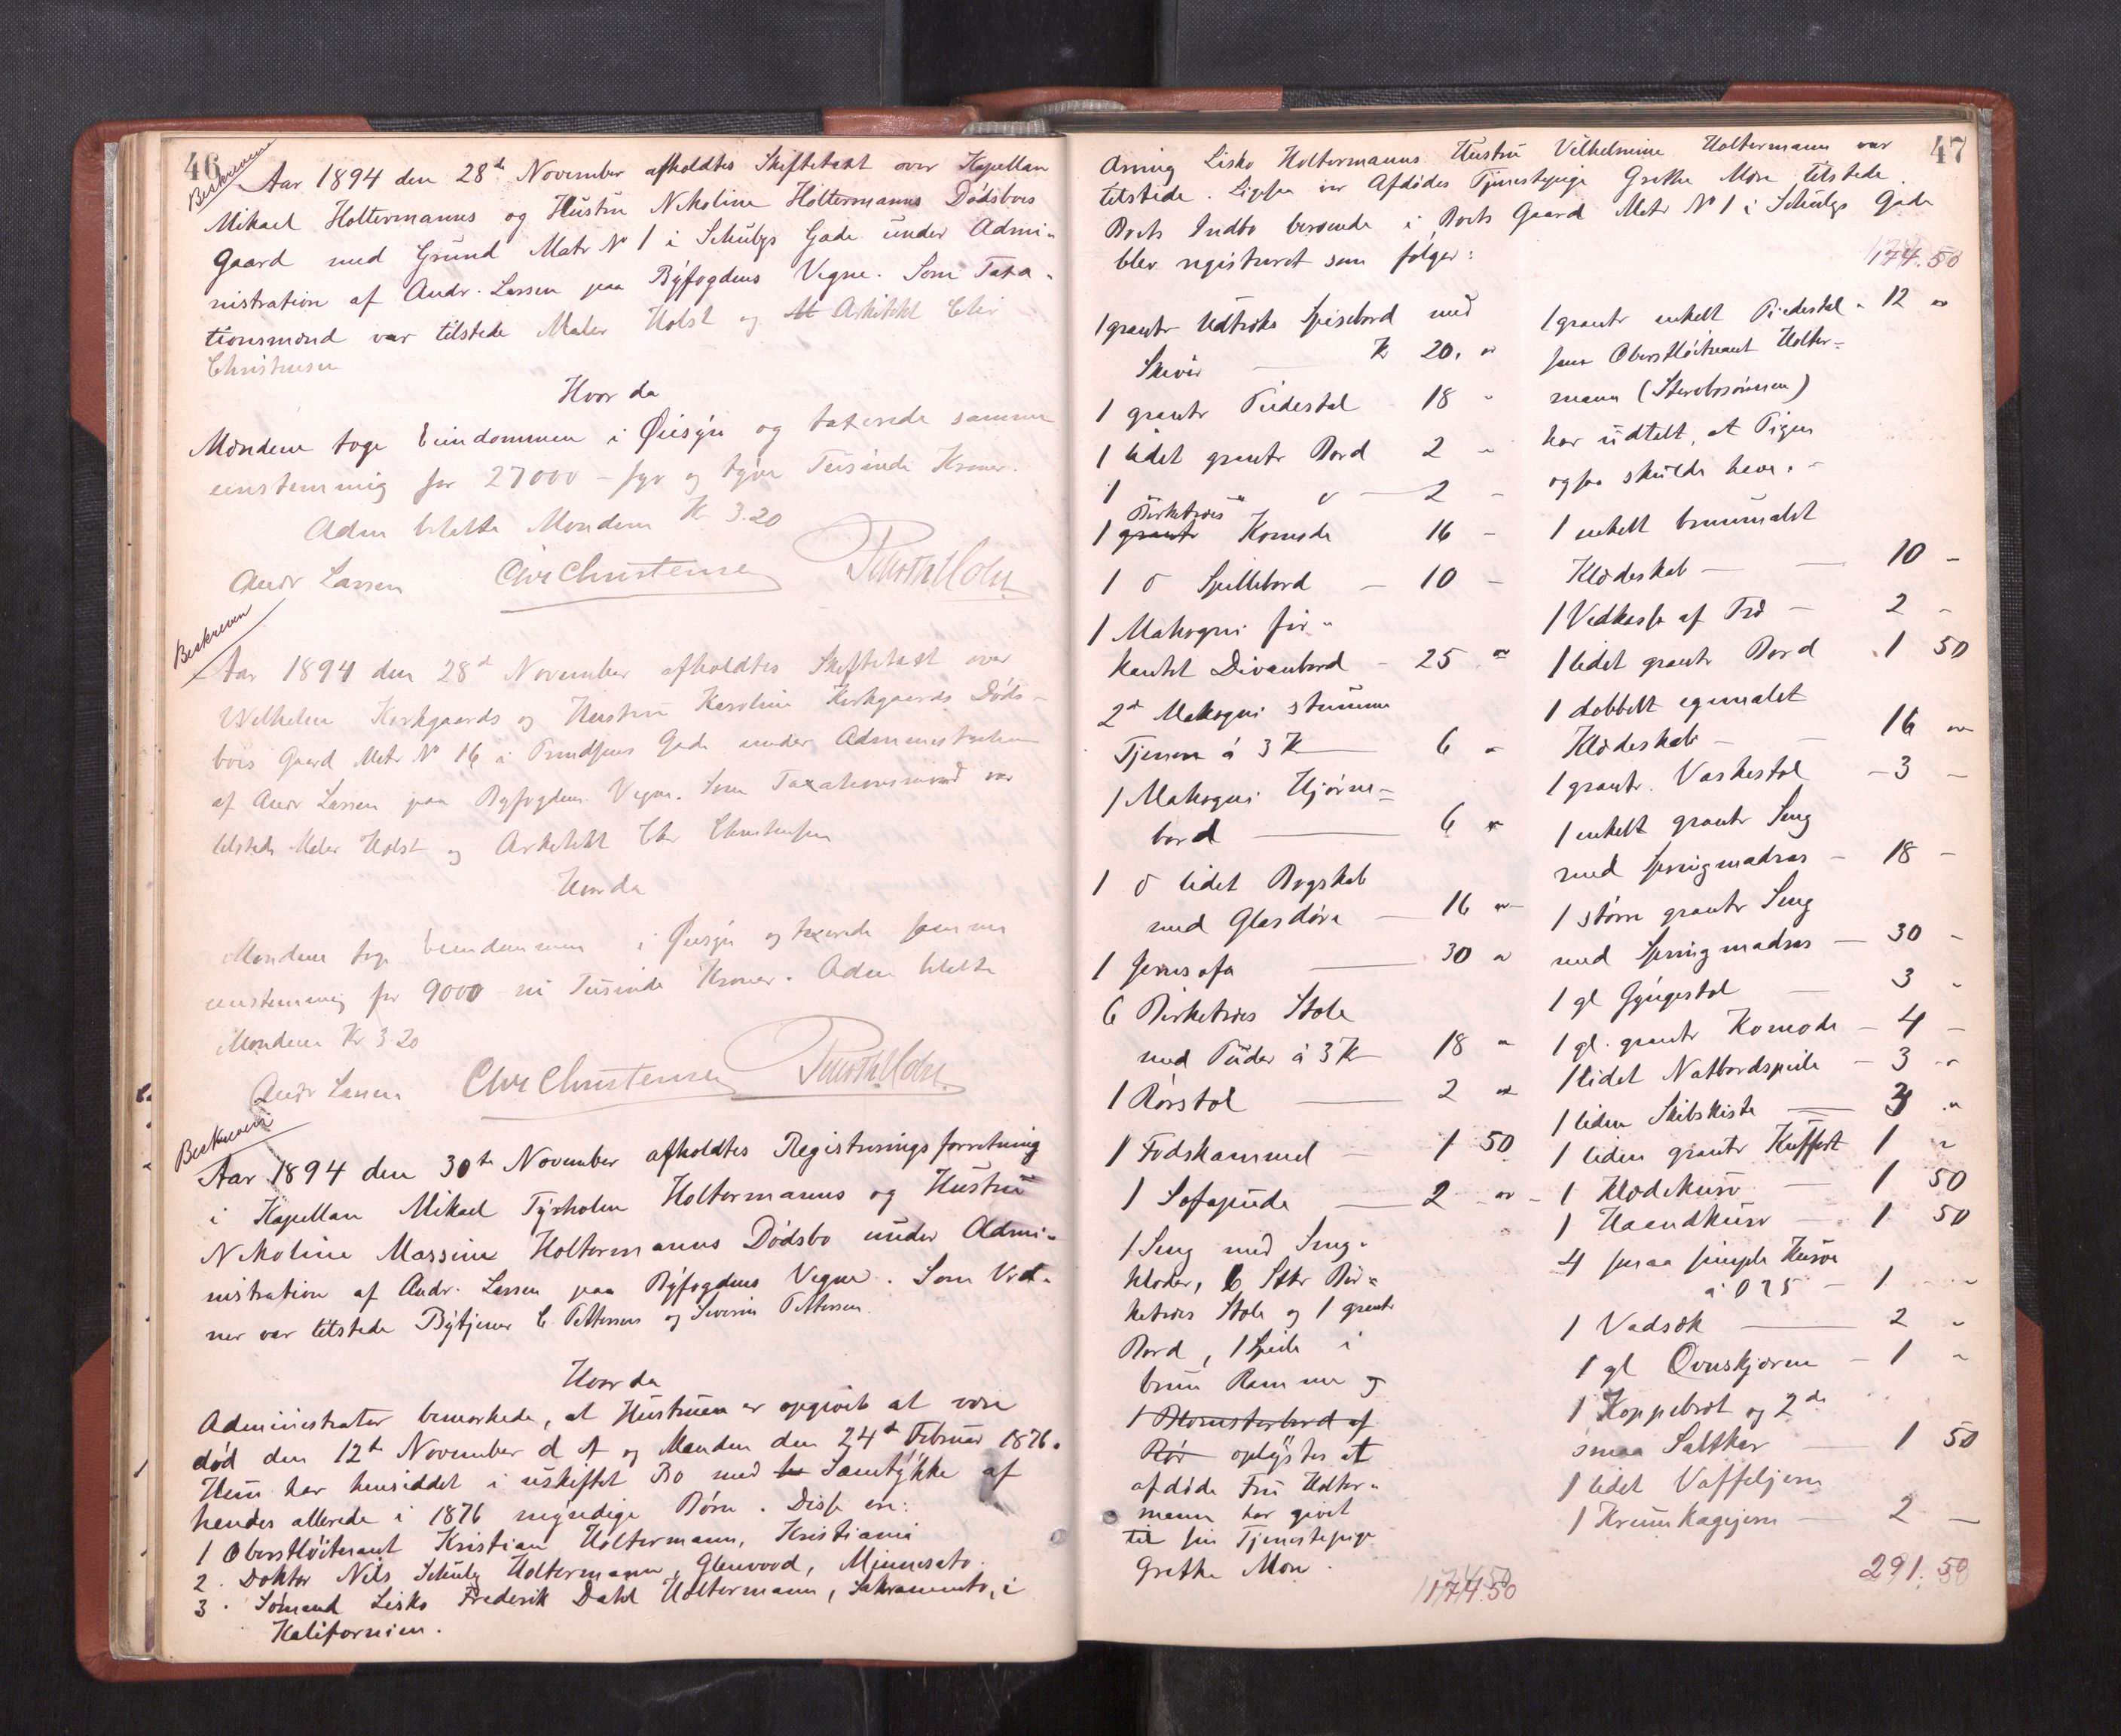 46
Beskreven
Aar 1894 den 28de November afholdtes Skiftetaxt over Kapellan
Mikael Holtermanns og Hustru Nikoline Holtermanns Dødsboes
Gaard med Grund Matr No 1 i Schulzs Gade under Admi-
nistration af Andr. Larsen paa Byfogdens Vegne. Som Taxa-
tionsmænd var tilstede Maler Holst og Arkitekt Chr
Christensen
Hvor da
Mændene toge Eiendommen i Øiesyn og taxerede samme
enstemmig for 27000 - syv og tyve Tusinde Kroner.
Adm betalte Mændene Kr 3.20
Andr Larsen Chr Christensen Holst
Beskreven
Aar 1894 den 28de November afholdtes Skiftetaxt over
Wilhelm Kirkgaards og Hustru Karoline Kirkgaards Døds-
boes Gaard Matr No 16 i Gade under Administration
af Andr Larsen paa Byfogdens Vegne. Som Taxationsmænd var
tilstede Maler Holst og Arkitekt Chr Christensen
Hvor da
Mændene toge Eiendommen i Øiesyn og taxerede samme
enstemmig for 9000 - ni Tusinde Kroner. Adm betalte
Mændene Kr 3.20
Andr Larsen Chr Christensen Holst
Beskreven
Aar 1894 den 30te November afholdtes Registreringsforretning
i Kapellan Mikael Tyrholm Holtermanns og Hustru
Nikoline Massine Holtermanns Dødsbo under Admi-
nistration af Andr. Larsen paa Byfogdens Vegne. Som Vid-
ner var tilstede Bytjener C. Pettersen og Severin Pettersen.
Hvor da
Administrator bemærkede, at Hustruen er opgivet at være
død den 12te November d A og Manden den 24de Februar 1876.
Hun har hensiddet i uskiftet Bo med Samtykke af
hendes allerede i 1876 myndige Børn. Disse ere:
1 Oberstløitenant Kristian Holtermann, Kristiania
2. Doktor Nils Schulz Holtermann, Glenwood, Minnesota.
3. Sømand Lisko Frederik Dahl Holtermann, Sakramento, i
Kalifornien.
47
Arving Lisko Holtermanns Hustru Vilhelmine Holtermann var
tilstede. Ligesaa var Afdødes Tjenestepige Grethe Moe tilstede.
Boets Indbo beroende i Boets Gaard Matr No 1 i Schulzs Gade
blev registreret som følger:
1 graatr Udtræks Spisebord med
Skuer — K 20. "
1 graatr Piedestal - 18 "
1 lidet graatr Bord 2 "
1 " d — 2 -
Birketræs
1 graatr Komode 16 -
1 d Spillebord — 10 -
1 Mahogni fir-
kantet Divanbord - 25 "
2de Mahogni stumme
Tjenere á 3 K — 6 "
1 Mahogni Hjørne-
bord — 6 "
1 d lidet Bogskab
med Glasdøre — 16 "
1 Jernsofa — 30 "
6 Birketræs Stole
med Puder á 3 K 18 "
1 Rørstol — 2 "
1 Fodskammel — 1 50
1 Sofapude — 2 "
1 Seng med Seng-
klæder, 6 Stkr Bir-
ketræs Stole og 1 graatr
Bord, 1 Speile i
brun Ramme og
1 Blomsterbord af
Rør oplystes at
afdøde Fru Holter-
mann har givet
til sin Tjenestepige
Grethe Moe.
174.50
174.50
1 graatr enkelt Piedestal - 12 "
som Oberstløitnant Holter-
mann (Stervbosønnen)
har udtalt, at Pigen
ogsaa skulde have. -
1 enkelt brunmalet
Klædeskab — 10 -
1 Vedkasse af Træ — 2 -
1 lidet graatr Bord 1 50
1 dobbelt egemalet
Klædeskab — 16 "
1 graatr. Vaskestol — 3 -
1 enkelt graatr Seng
med Springmadras — 18 -
1 større graatr Seng
med Springmadras — 30 -
1 gl Gyngestol — 3 "
1 gl. graatr Komode — 4 -
1 lidet Natbordspeile — 3 "
1 liden Skibskiste — 3 "
1 liden graatr Kuffert 1 "
1 Klædekurv — 1 50
1 Haandkurv — 1 50
4 smaa simple Kurve
á 0 25 — 1 "
1 Vadsæk — 2 "
1 gl Ovnskjærm — 1 "
1 Koppebræt og 2de
smaa Saltkar — 1 50
1 lidet Vaffeljern
1 Krumkagejern — 2 —
291.50